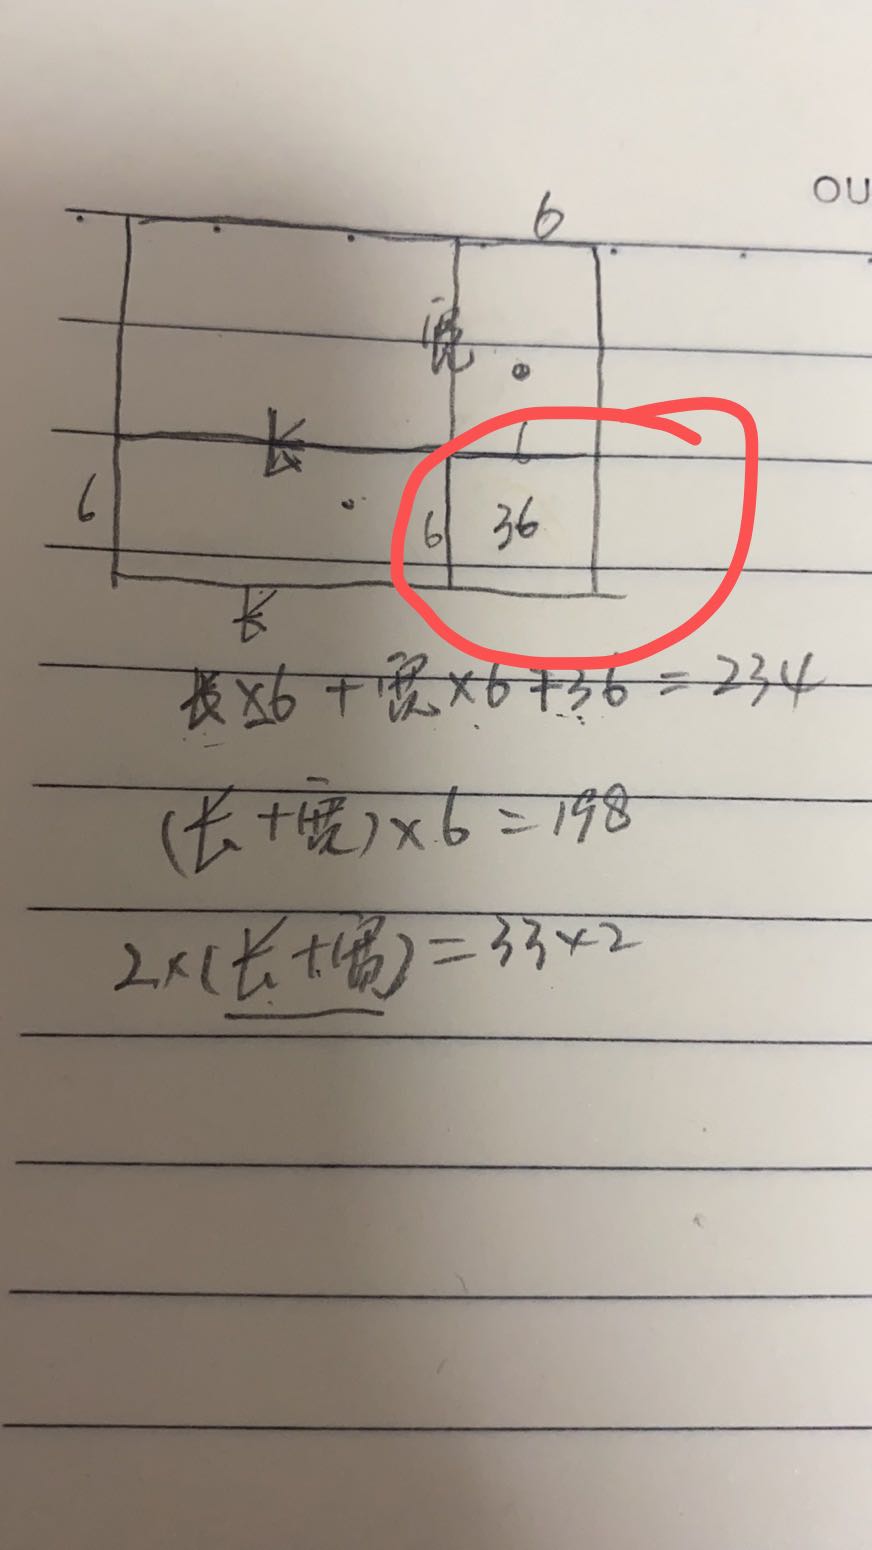 OU
6
宽
长
6
6
6
36
长
长×6+宽×6+36=234
(长+宽)×6=198
2×(长+宽)=33×2